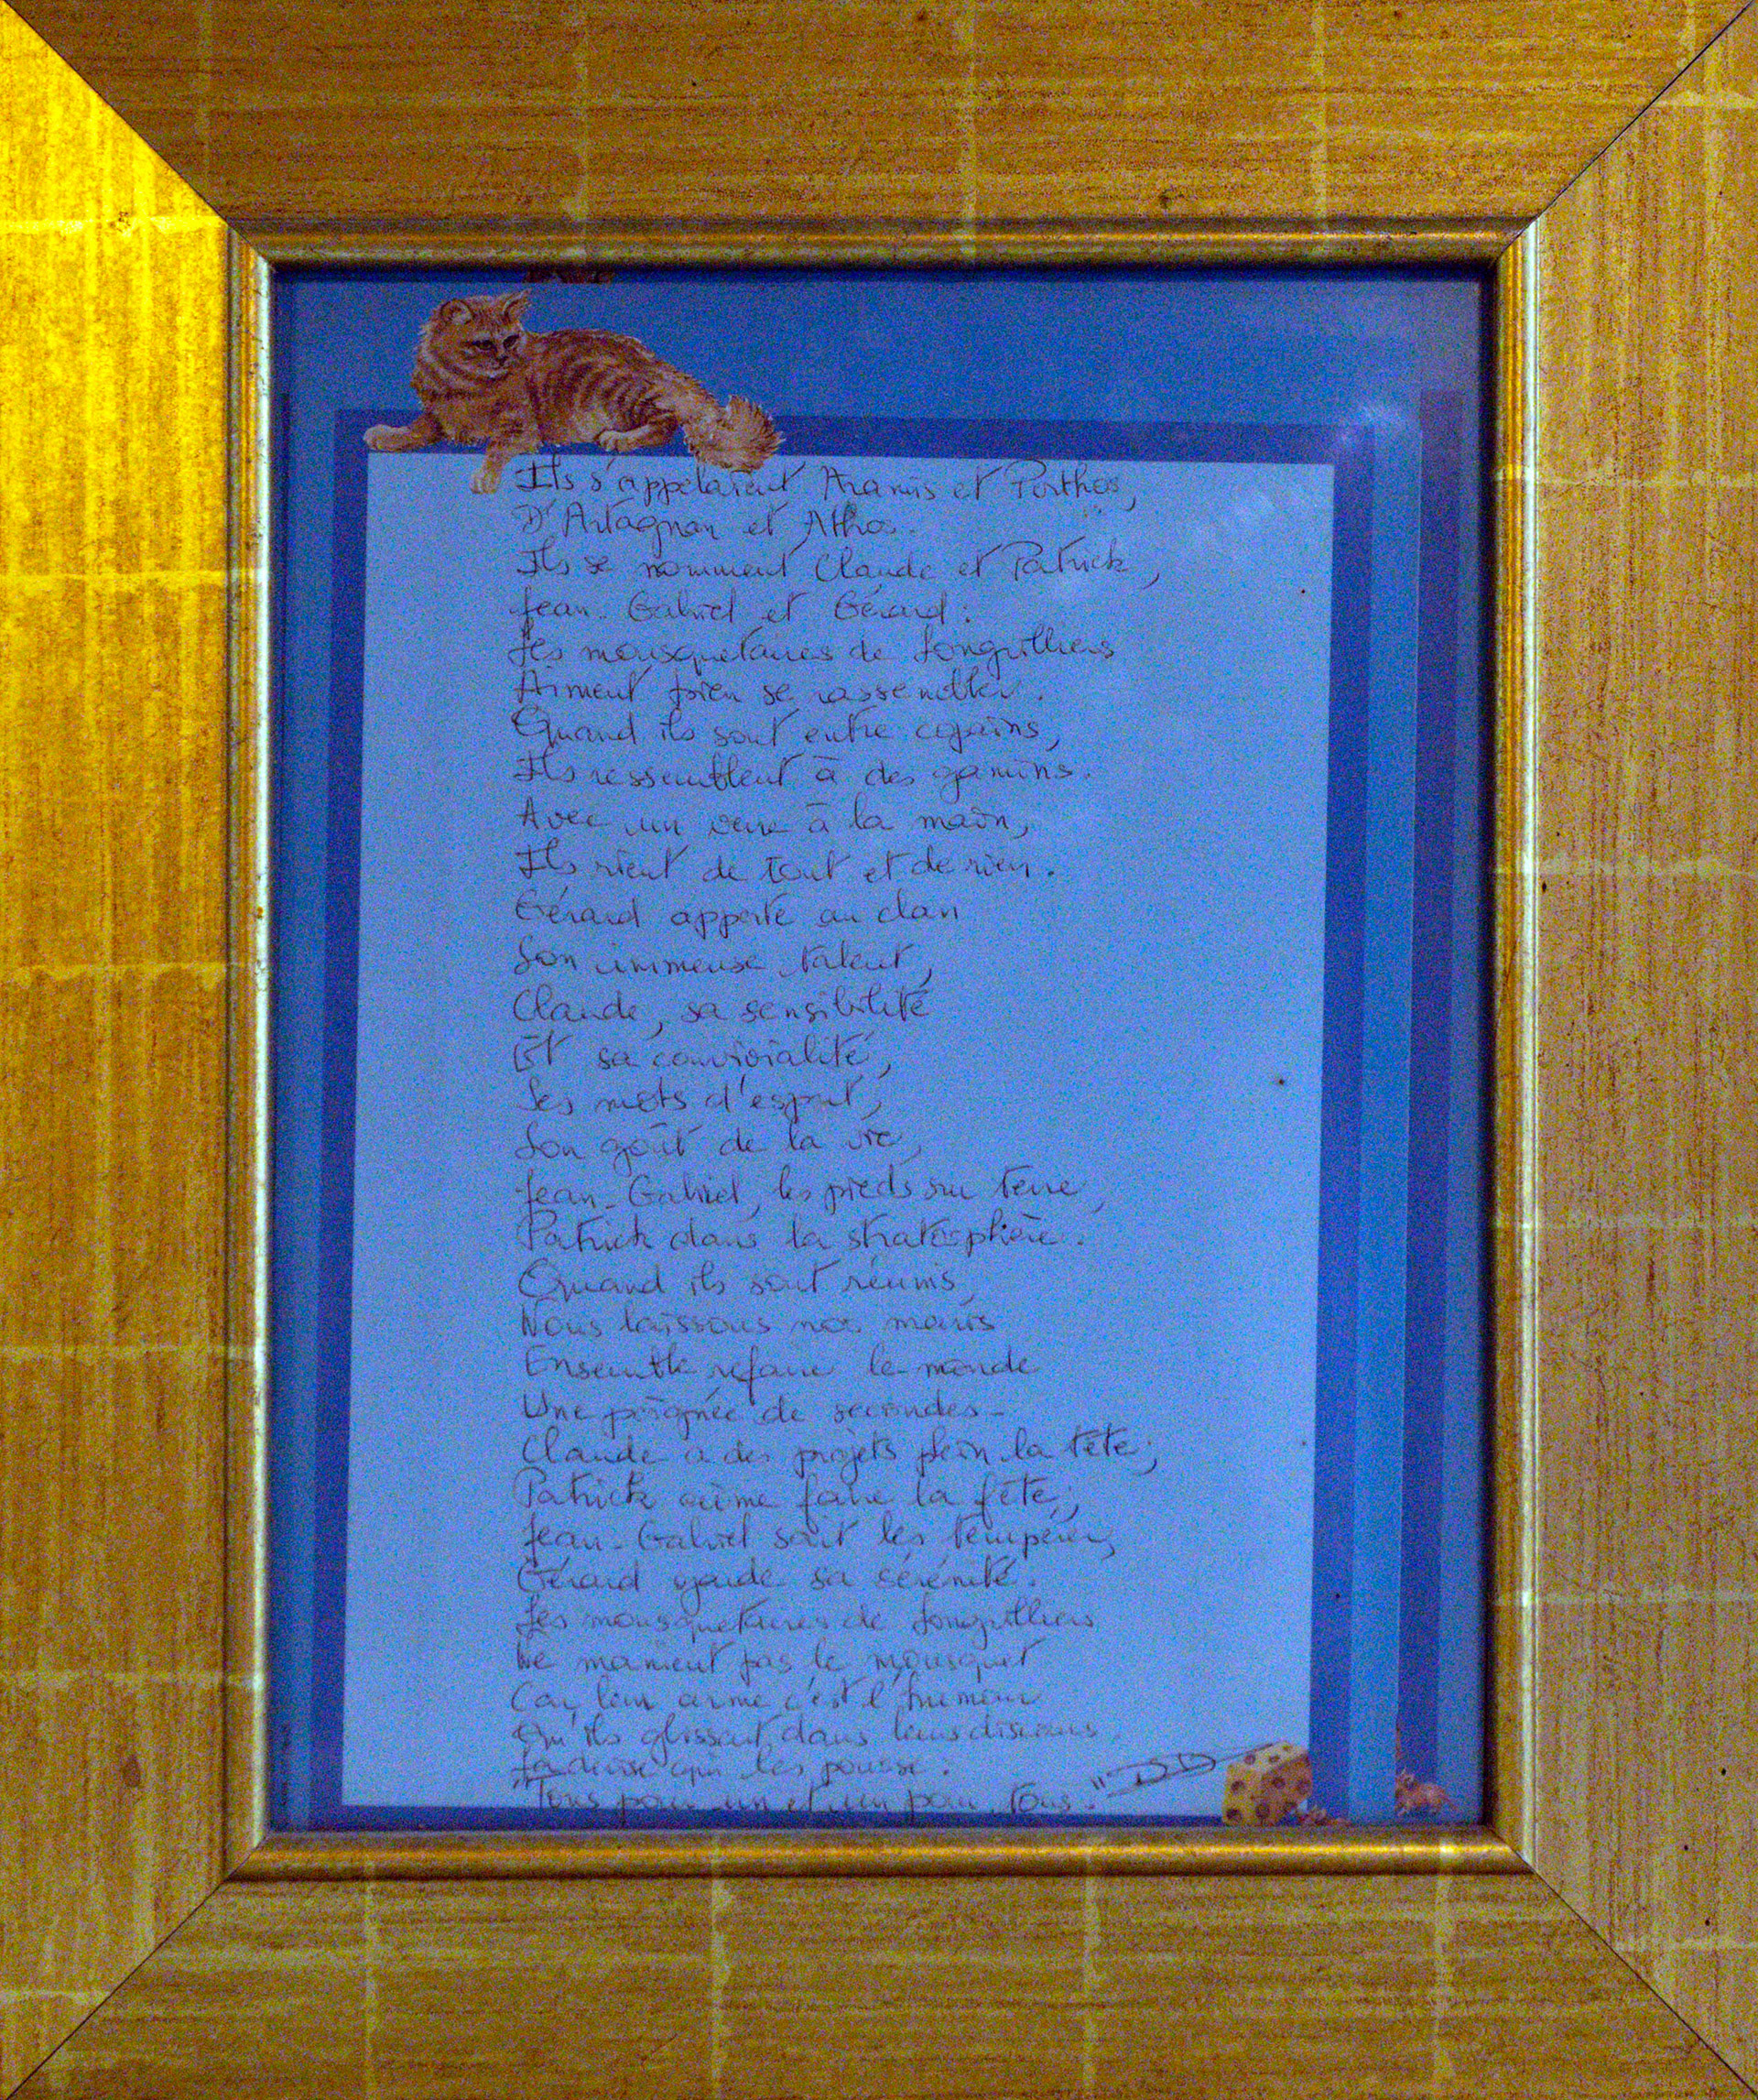 Ils s'appelaient Aramis et Porthos,
D'Artagnan et Athos.
Ils se nomment Claude et Patrick,
Jean-Gabriel et Gérard :
Les mousquetaires de Longvilliers
Aiment bien se rassembler.
Quand ils sont entre copains,
Ils ressemblent à des gamins.
Avec un verre à la main,
Ils rient de tout et de rien.
Gérard apporte au clan
Son immense talent,
Claude, sa sensibilité
Et sa convivialité,
Ses mots d'esprit,
Son goût de la vie,
Jean-Gabriel, les pieds sur terre,
Patrick dans la stratosphère.
Quand ils sont réunis,
Nous laissons nos maris
Ensemble refaire le monde
Une poignée de secondes -
Claude a des projets plein la tête ;
Patrick aime faire la fête ;
Jean-Gabriel sait les tempérer,
Gérard garde sa sérénité.
Les mousquetaires de Longvilliers
Ne manient pas le mousquet
Car leur arme c'est l'humour
Qu'ils glissent dans leurs discours.
La devise qui les pousse :
"Tous pour un et un pour tous."
DD